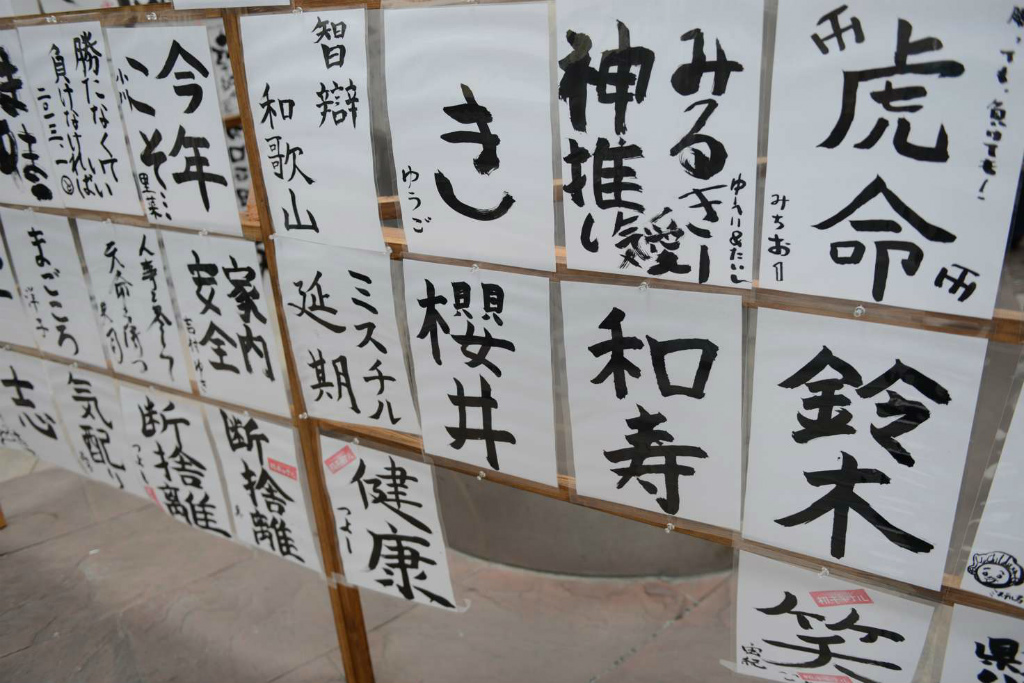 今年
こそ…
里菜
勝たなくてい
負けなければ
智辯
和歌山
きし
ゆうご
みるきー
神推し
ゆうり&たいし
虎命
みちお
負けても!
まごころ
洋子
人事を尽くし
天命を待つ
家内
安全
ミスチル
延期
櫻井
和寿
鈴木
志
気配り
断捨離
断捨離
健康
つよし
笑
由紀
県